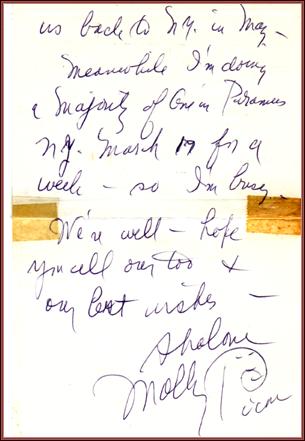 us back to N.Y. in May –
Meanwhile I'm doing
a Majority of One in Paramus
N.J. March 19 for a
week – so I'm busy
We're well – hope
you all are too &
our best wishes –
Shalom
Molly Picon